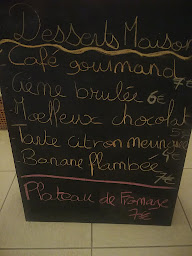 Desserts Maison
Café gourmand 7€
Crème brulée 6€
Moelleux chocolat
Tarte citron meringuée
Banane flambée 7€
Plateau de fromage
7€